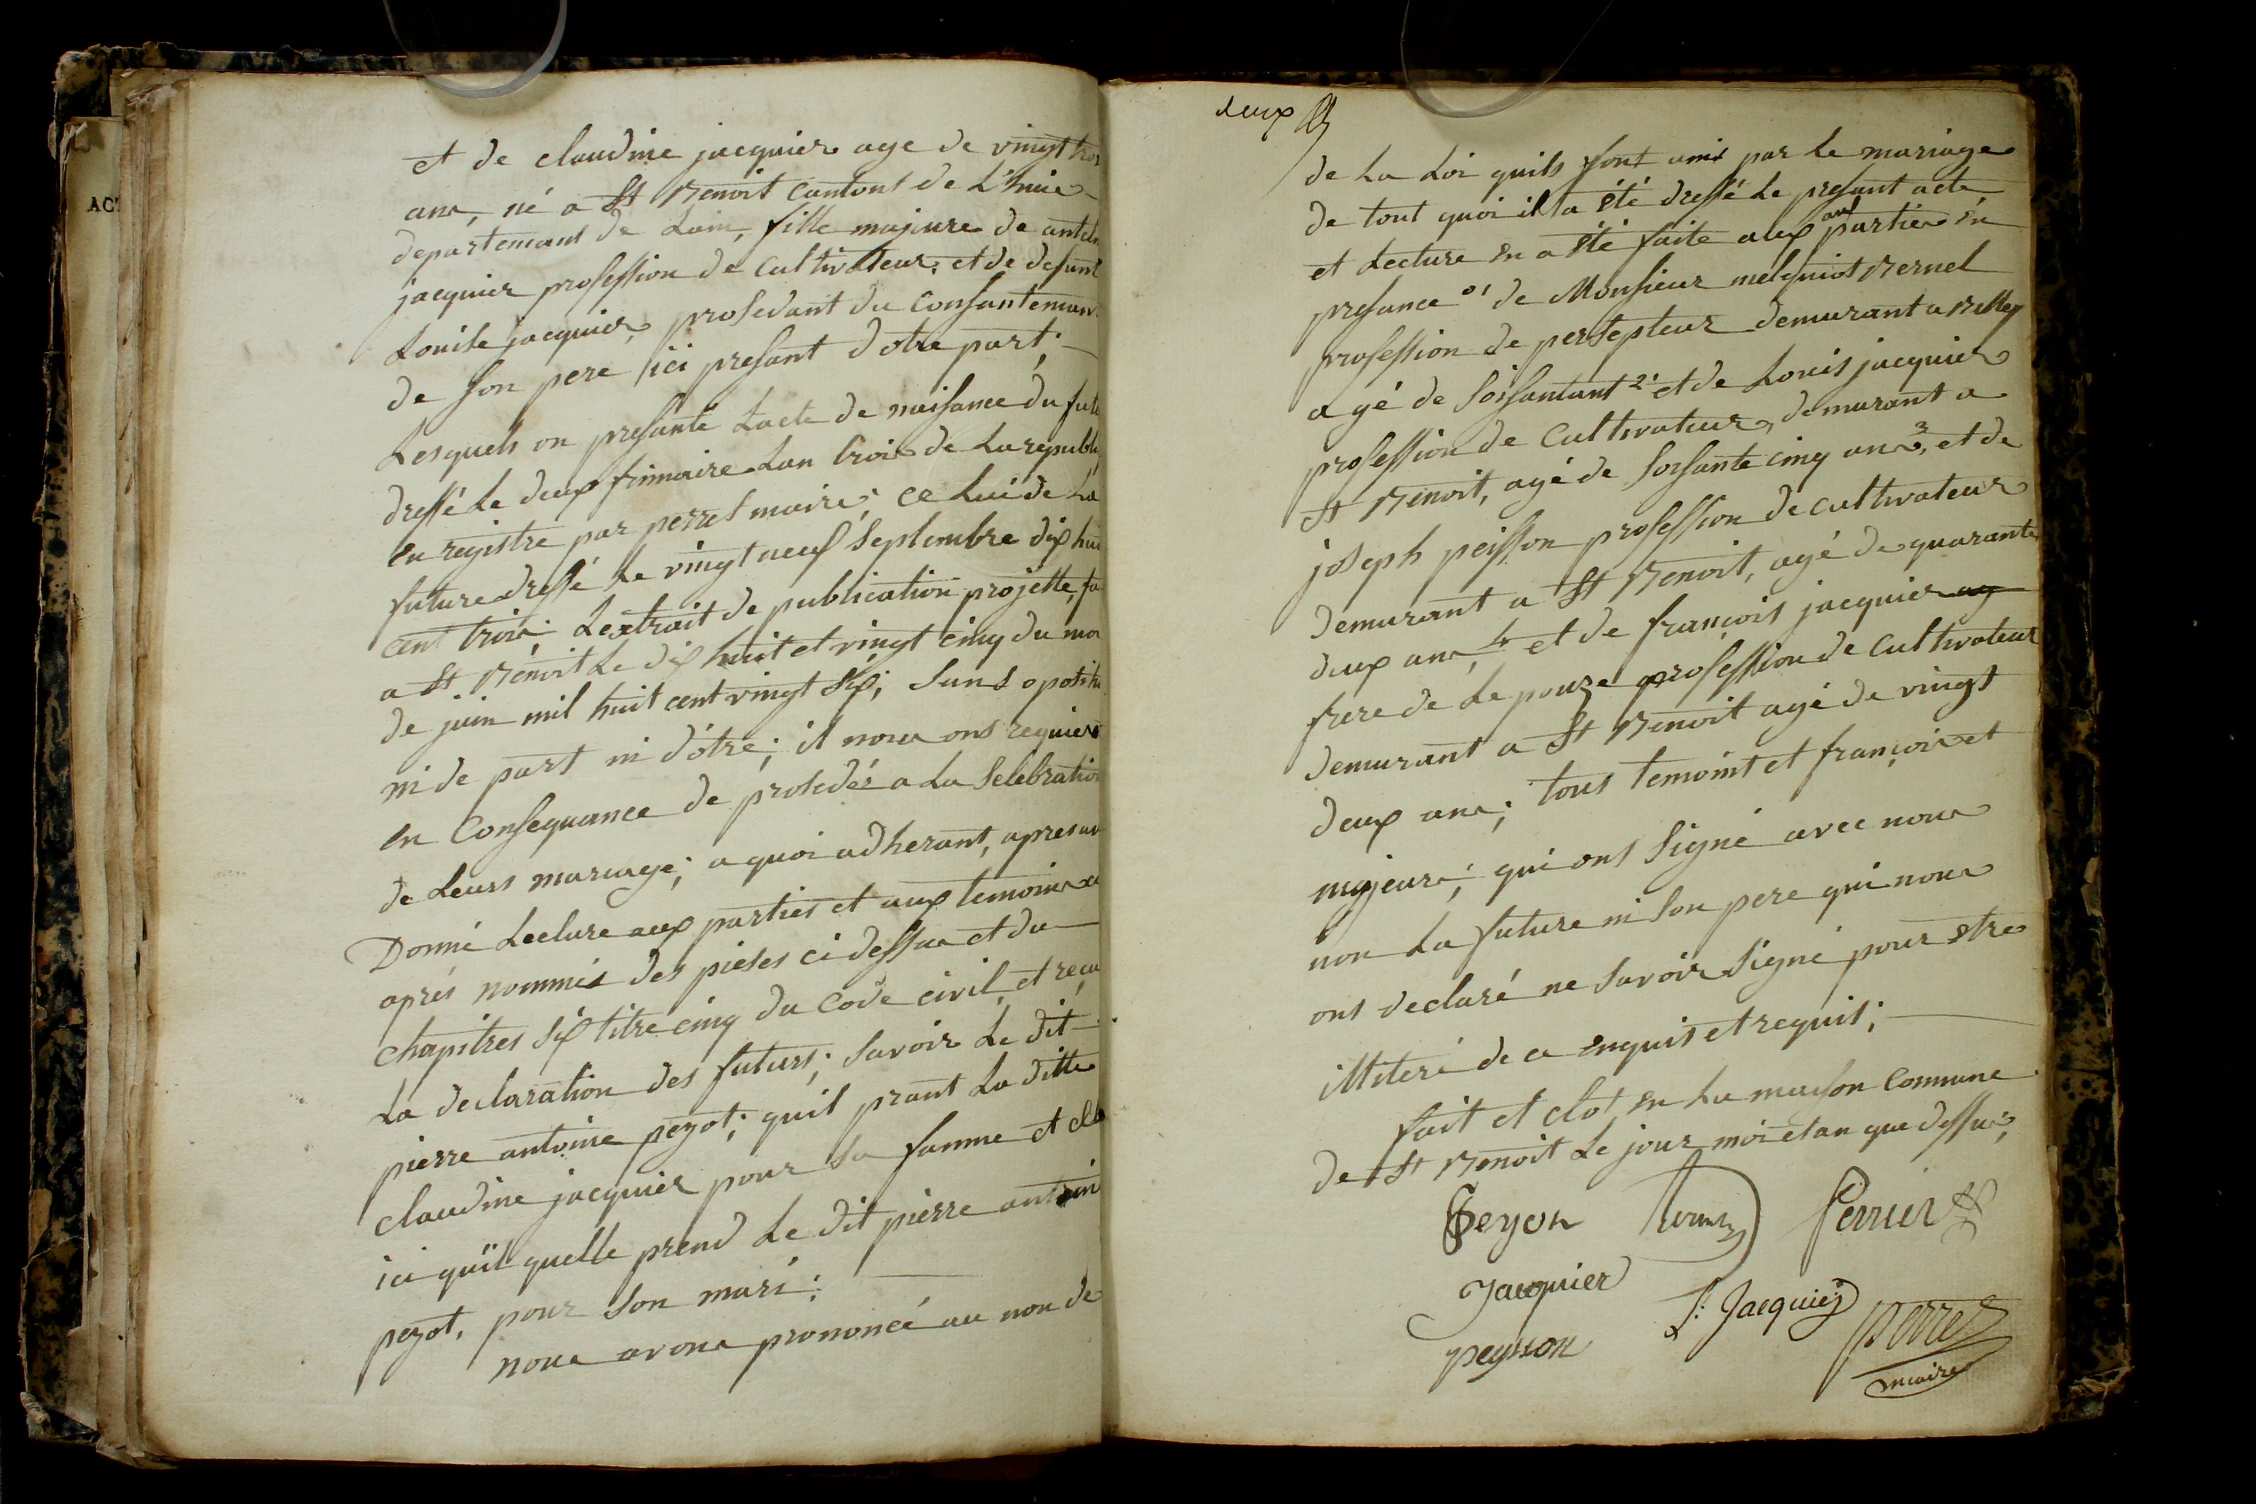 AC
et de claudine jacquier age de vingt troi
ans, né a St Benoit Cantons de L'huis
departemant de Lain, fille majeure de antelm
jacquier profession de Cultivateur, et de defunt
Louise jacquier, prosedant du Consantemant
de son pere ici presant d'otre part;
Lesquels on presanté Lacte de naissance du futu
dressé Le deux frimaire Lan troix de La republi
en registre par perret maire; ce Lui de La
future dressé Le vingt neuf Septembre dix huit
cent trois; Lextrait de publication projette, fa
a St Benoit Le dix huit et vingt cinq du moi
de juin mil huit cent vingt Six; Sans opositi
ni de part ni d'otre; il nous ons requiere
en Consequance de prosedér a La Selebration
de Leurs mariage; a quoi adherant, apres av
Donné Lecture aux parties et aux temoins ci
aprés nommés des pieses ci dessus et du
chapitres Six titre cinq du code civil, et reçu
La declaration des futurs; Savoir Le dit
pierre antoine pezot; quil prant La ditte
claudine jacquier pour Sa famme et elle
ici quil quelle prend Le dit pierre antoin
pezot, pour Son mari;
nous avons prononcé au non de
deux
de La Loi quils sont unis par Le mariage
de tout quoi il a été dressé Le presant acte
et Lecture en a été faite aux parties en
presance 1 de Monsieur Bernel
profession de persepteur demurant a Belley
agé de Soissantant 2 et de Louis jacquier
profession de Cultivateur, demurant a
St Benoit, agé de Soissante cinq ans, 3 et de
joseph peisson profession de cultivateur
demurant a St Benoit, agé de quarante
deux ans, 4 et de françois jacquier ag
frere de Lepouze profession de Cultivateur
demurant a St Benoit agé de vingt
deux ans; tous temoint et françois et
majeurs; qui ons Signé avec nous
non La future ni Son pere qui nous
ons declaré ne Savoir Signé pour etre
illiteré de ce enquis et requis;
fait et clot en La maison Commune
de St Benoit Le jour mois et an que dessus,
Peyson
Perrier
Jacquier
L. Jacquier
peysson
Perret
maire